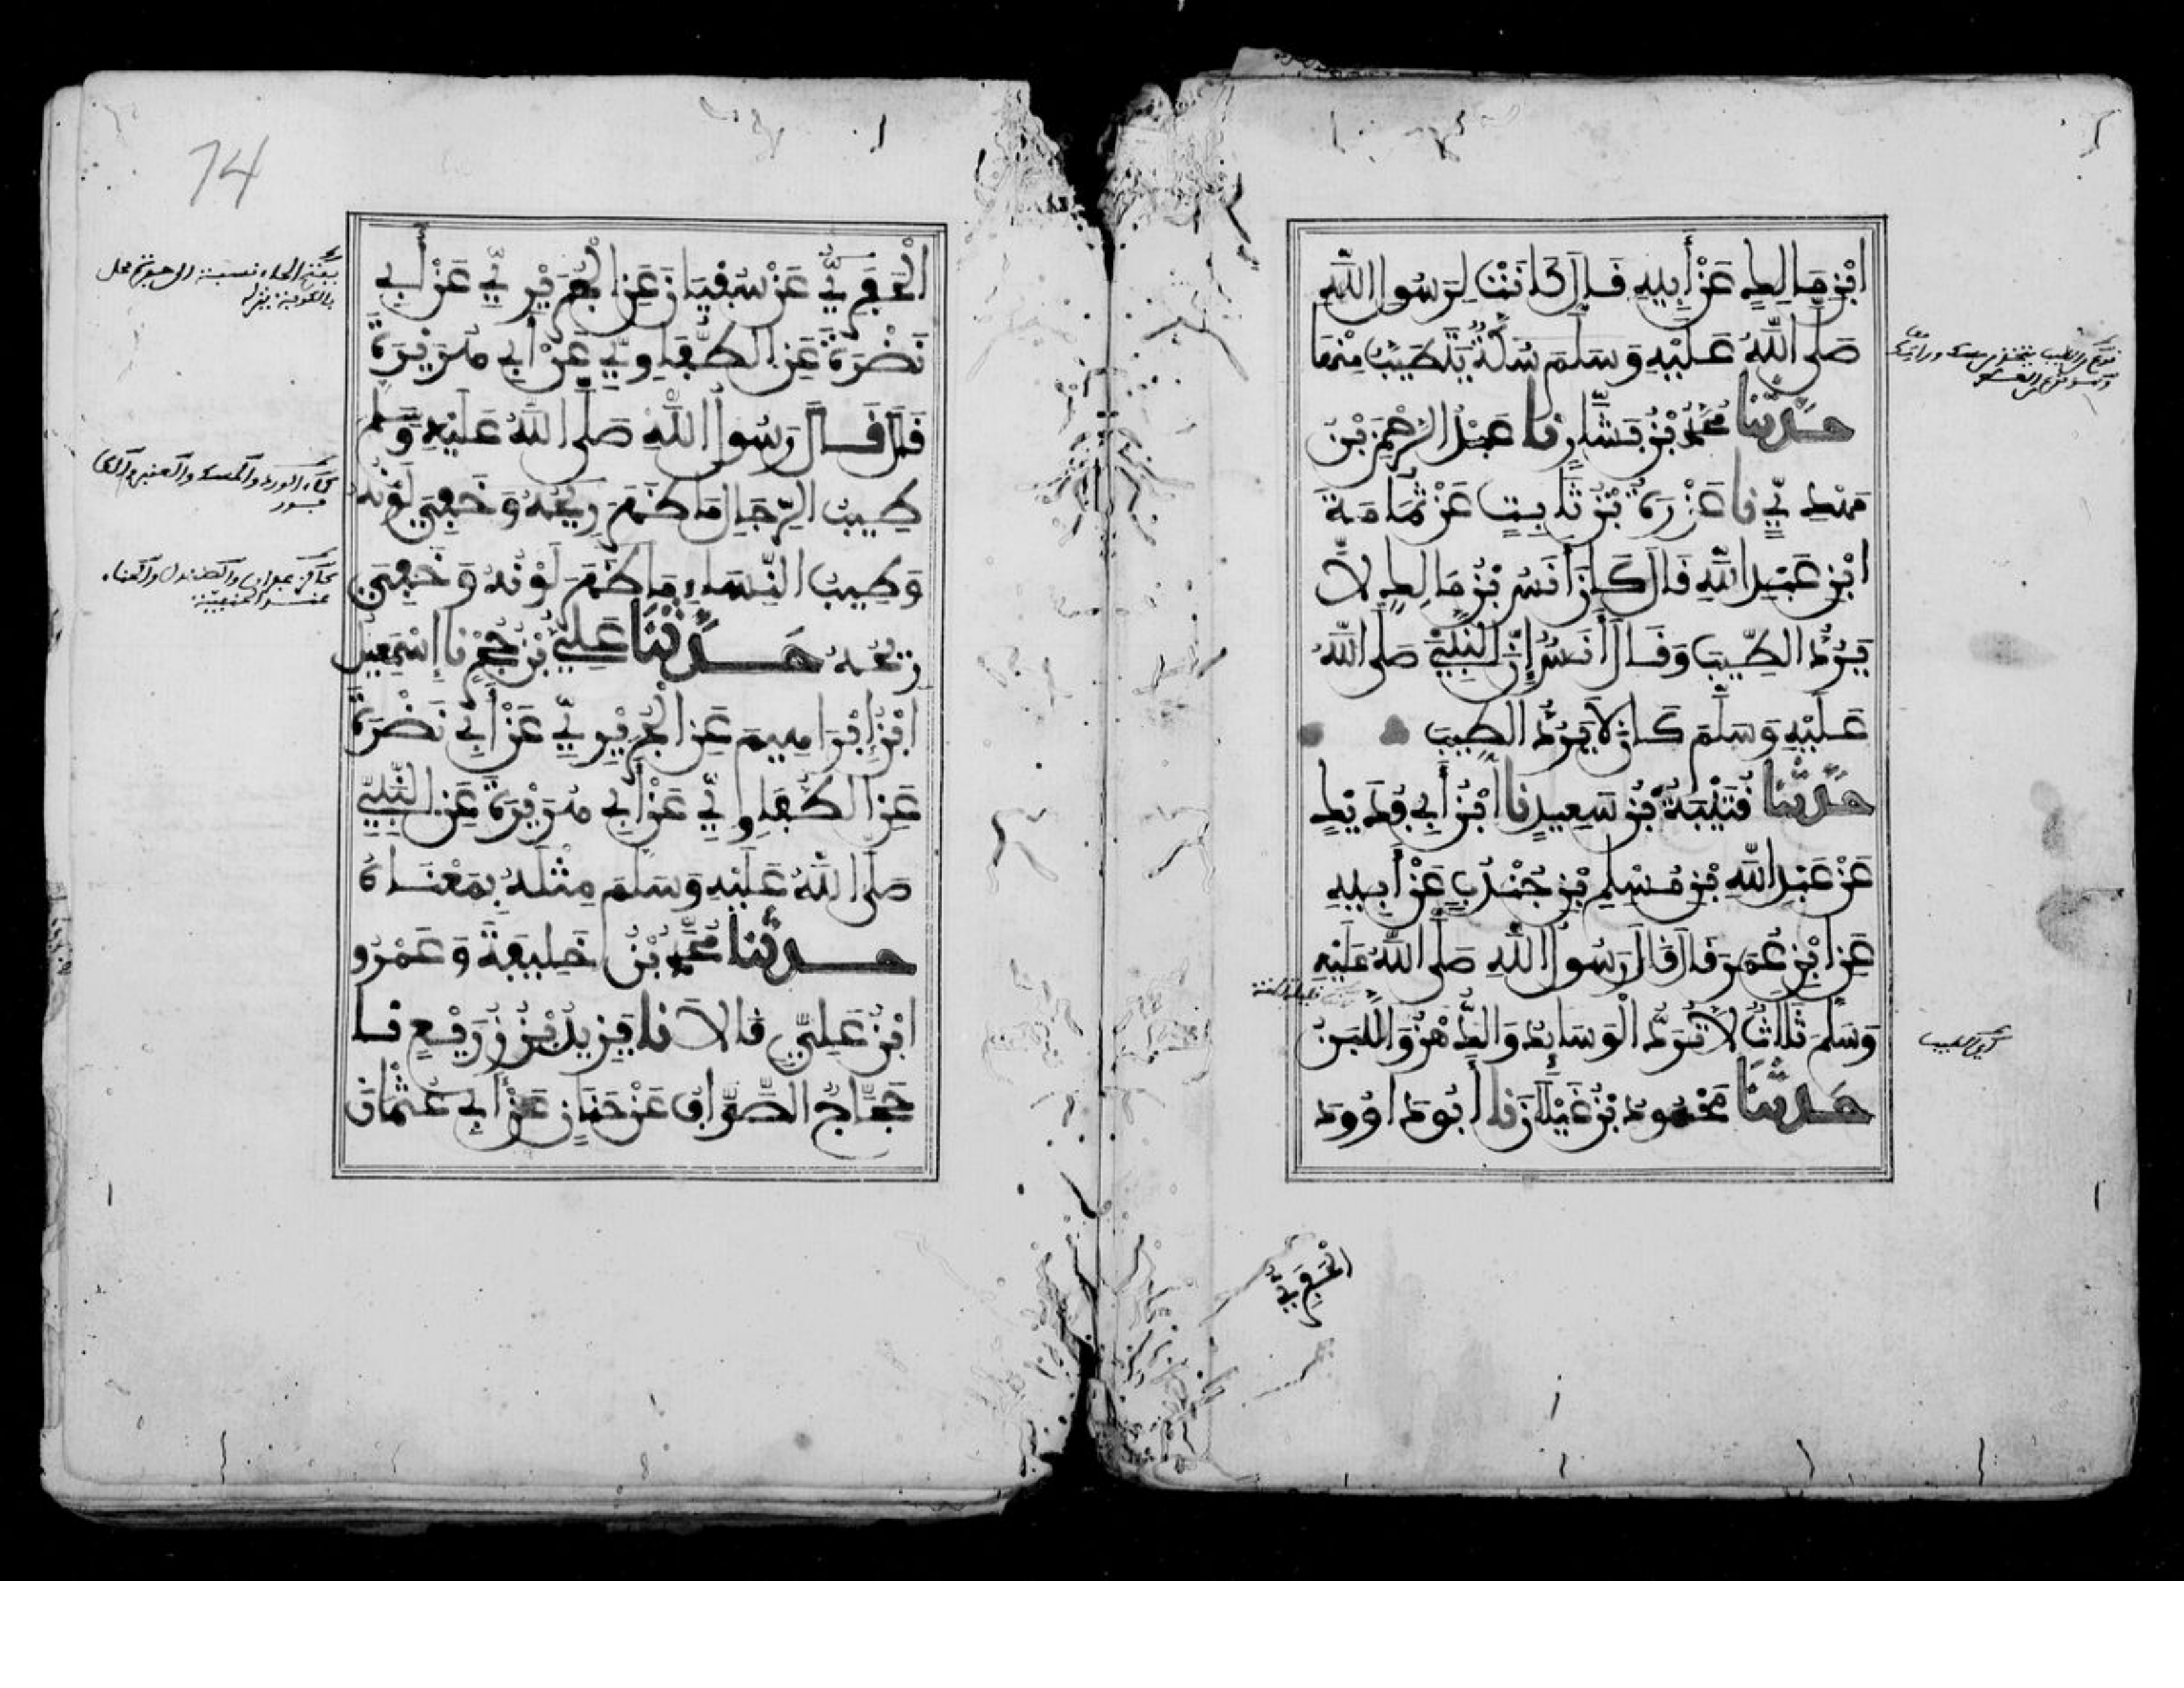 ابْنِ مَالِكٍ عَنْ أَبِيهِ قَالَ كَانَتْ لِرَسُولِ اللَّهِ
صَلَّى اللَّهُ عَلَيْهِ وَسَلَّمَ سُكَّةٌ يَتَطَيَّبُ مِنْهَا
حَدَّثَنَا مُحَمَّدُ بْنُ بَشَّارٍ نا عَبْدُ الرَّحْمَنِ بْنُ
مَهْدِيٍّ نا عَزْرَةُ بْنُ ثَابِتٍ عَنْ ثُمَامَةَ
ابْنِ عَبْدِ اللَّهِ قَالَ كَانَ أَنَسُ بْنُ مَالِكٍ لاَ
يَرُدُّ الطِّيبَ وَقَالَ أَنَسٌ إِنَّ النَّبِيَّ صَلَّى اللَّهُ
عَلَيْهِ وَسَلَّمَ كَانَ لاَ يَرُدُّ الطِّيبَ
حَدَّثَنَا قُتَيْبَةُ بْنُ سَعِيدٍ نا ابْنُ أَبِي فُدَيْكٍ
عَنْ عَبْدِ اللَّهِ بْنِ مُسْلِمِ بْنِ جُنْدُبٍ عَنْ أَبِيهِ
عَنِ ابْنِ عُمَرَ قَالَ قَالَ رَسُولُ اللَّهِ صَلَّى اللَّهُ عَلَيْهِ
وَسَلَّمَ ثَلَاثٌ لاَ تُرَدُّ الْوَسَائِدُ وَالدُّهْنُ وَاللَّبَنُ
حَدَّثَنَا مَحْمُودُ بْنُ غَيْلَانَ نا أَبُو دَاوُودَ
الْحَفَرِيُّ
74
الْحَفَرِيُّ عَنْ سُفْيَانَ عَنِ الْجُرَيْرِيِّ عَنْ أَبِي
نَضْرَةَ عَنِ الطُّفَاوِيِّ عَنْ أَبِي هُرَيْرَةَ
قَالَ قَالَ رَسُولُ اللَّهِ صَلَّى اللَّهُ عَلَيْهِ وَسَلَّمَ
طِيبُ الرِّجَالِ مَا ظَهَرَ رِيحُهُ وَخَفِيَ لَوْنُهُ
وَطِيبُ النِّسَاءِ مَا ظَهَرَ لَوْنُهُ وَخَفِيَ
رِيحُهُ حَدَّثَنَا عَلِيُّ بْنُ حُجْرٍ نا إِسْمَعِيلُ
ابْنُ إِبْرَاهِيمَ عَنِ الْجُرَيْرِيِّ عَنْ أَبِي نَضْرَةَ
عَنِ الطُّفَاوِيِّ عَنْ أَبِي هُرَيْرَةَ عَنِ النَّبِيِّ
صَلَّى اللَّهُ عَلَيْهِ وَسَلَّمَ مِثْلَهُ بِمَعْنَاهُ
حَدَّثَنَا مُحَمَّدُ بْنُ خَلِيفَةَ وَعَمْرُو
ابْنُ عَلِيٍّ قَالاَ نا يَزِيدُ بْنُ زُرَيْعٍ نا
حَجَّاجٌ الصَّوَّافُ عَنْ حَنَانٍ عَنْ أَبِي عُثْمَانَ
كماء الورد والمسك والعنبر والكا
فور
كالزعفران والصندل والحناء